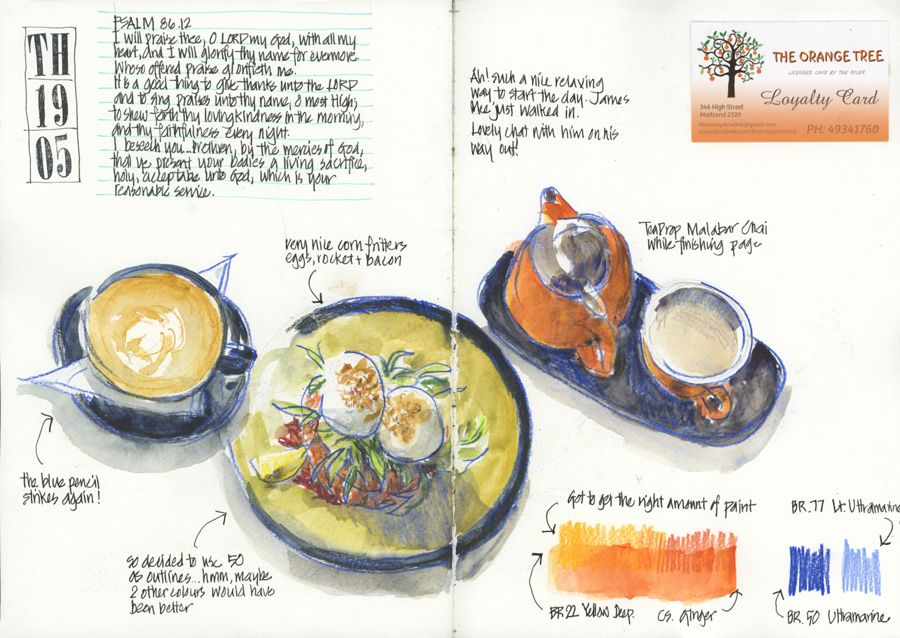 TH
19
05
PSALM 86.12
I will praise thee, O LORD my God, with all my
heart, and I will glorify thy name for evermore.
Whoso offered praise glorifieth me.
It is a good thing to give thanks unto the LORD
and to sing praises unto thy name, O most High;
to shew forth thy lovingkindness in the morning,
and thy faithfulness every night.
I beseech you...brethren, by the mercies of God,
that ye present your bodies a living sacrifice,
holy, acceptable unto God, which is your
reasonable service.
very nice corn fritters
eggs, rocket + bacon
the blue pencil
strikes again!
so decided to use 50
as outlines... hmm, maybe
2 other colours would have
been better
Ah! such a nice relaxing
way to start the day. James
Mc just walked in.
Lovely chat with him on his
way out!
THE ORANGE TREE
LICENSED CAFE BY THE RIVER
Loyalty Card
346 High Street
Maitland 2320
theorangetreeink@gmail.com
www.facebook.com/theorangetreeink
PH: 49341760
TeaDrop Malabar Chai
while finishing page
Got to get the right amount of paint
BR 22 Yellow Deep
CS. Ginger
BR.77 Lt. Ultramarine
BR.50 Ultramarine